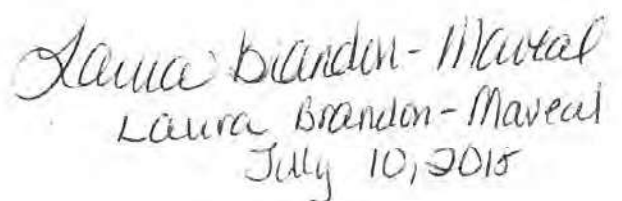 Laura Brandon-Maveal
Laura Brandon-Maveal
July 10, 2015